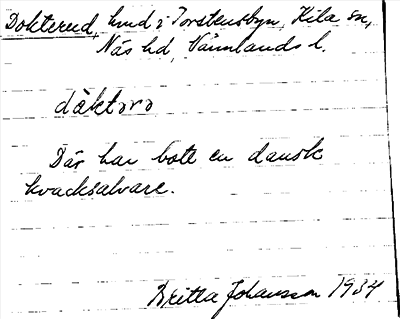 Dokterud, hmd i Torstensbyn, Kila sn,
Näs hd, Värmlands l.
dåktərə
Där har bott en dansk
kvacksalvare.
Britta Johansson 1934